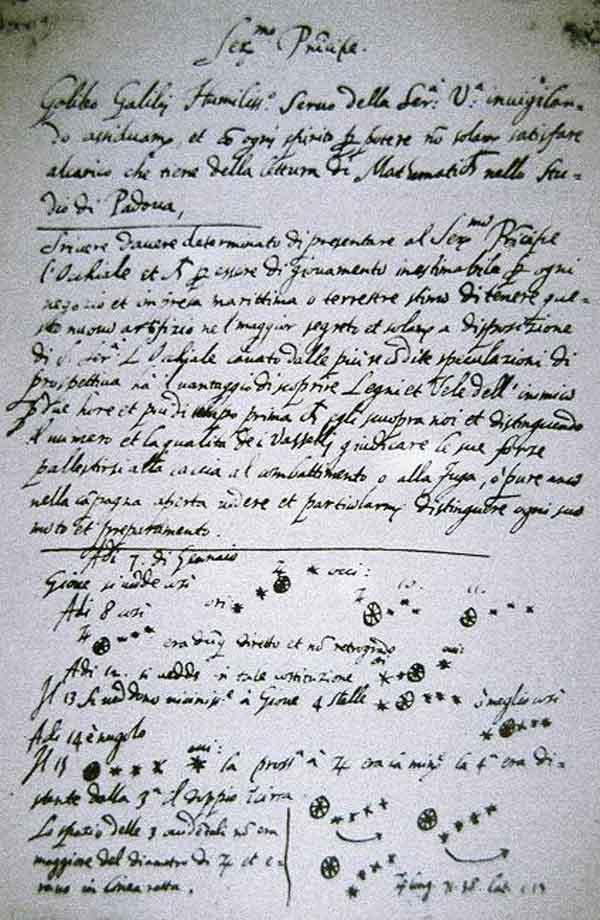 Ser.mo Principe.
Galileo Galilei Humiliss.o Servo della Ser.a V.a invigilan-
do assiduam.te, et cō ogni spirito p potere nō solam.te satisfare
alcarico che tiene della lettura di Mathematiche nello Stu-
dio di Padova,
Scrivere davere determinato di presentare al Ser.mo Principe
l'Occhiale et p essere di giovamento inestimabile p ogni
negozio et impresa marittima o terrestre stimo di tenere que-
sto nuovo artifizio nel maggior segreto et solam.te a disposizione
di S. Ser.a L'Occhiale cavato dalle più recōdite speculazioni di
prospettiva hà il vantaggio di scoprire Legni et Vele dell'inimico
p due hore et più di tempo prima che egli scuopra noi et distinguendo
il numero et la qualità de i Vasselli giudicare le sue forze
pallestirsi alla caccia al combattimento o alla fuga, ò pure anco
nella cāpagna aperta vedere et particolarm.te distinguere ogni suo
moto et preparamento.
Adi 7. di Gennaio
Gione si vedde così occi:
Adi 8 così ori: 10. 11.
era dūq. diretto et nō retrogrado
Adi 12. si vedde in tale costituzione ori occi:
Il 13 si veddono vicinis.e à Giove 4 stelle è meglio così
Adi 14 è nugolo
Il 15 occi: la pross.a à ♃ era la min.e la 4.a era di-
stante dalla 3.a il doppio incirca
Lo spazio delle 3 occidētali nō era
maggiore del diametro di ♃ et e-
rano in linea retta.
♃ long. 71. 38. Lat. 1. 13